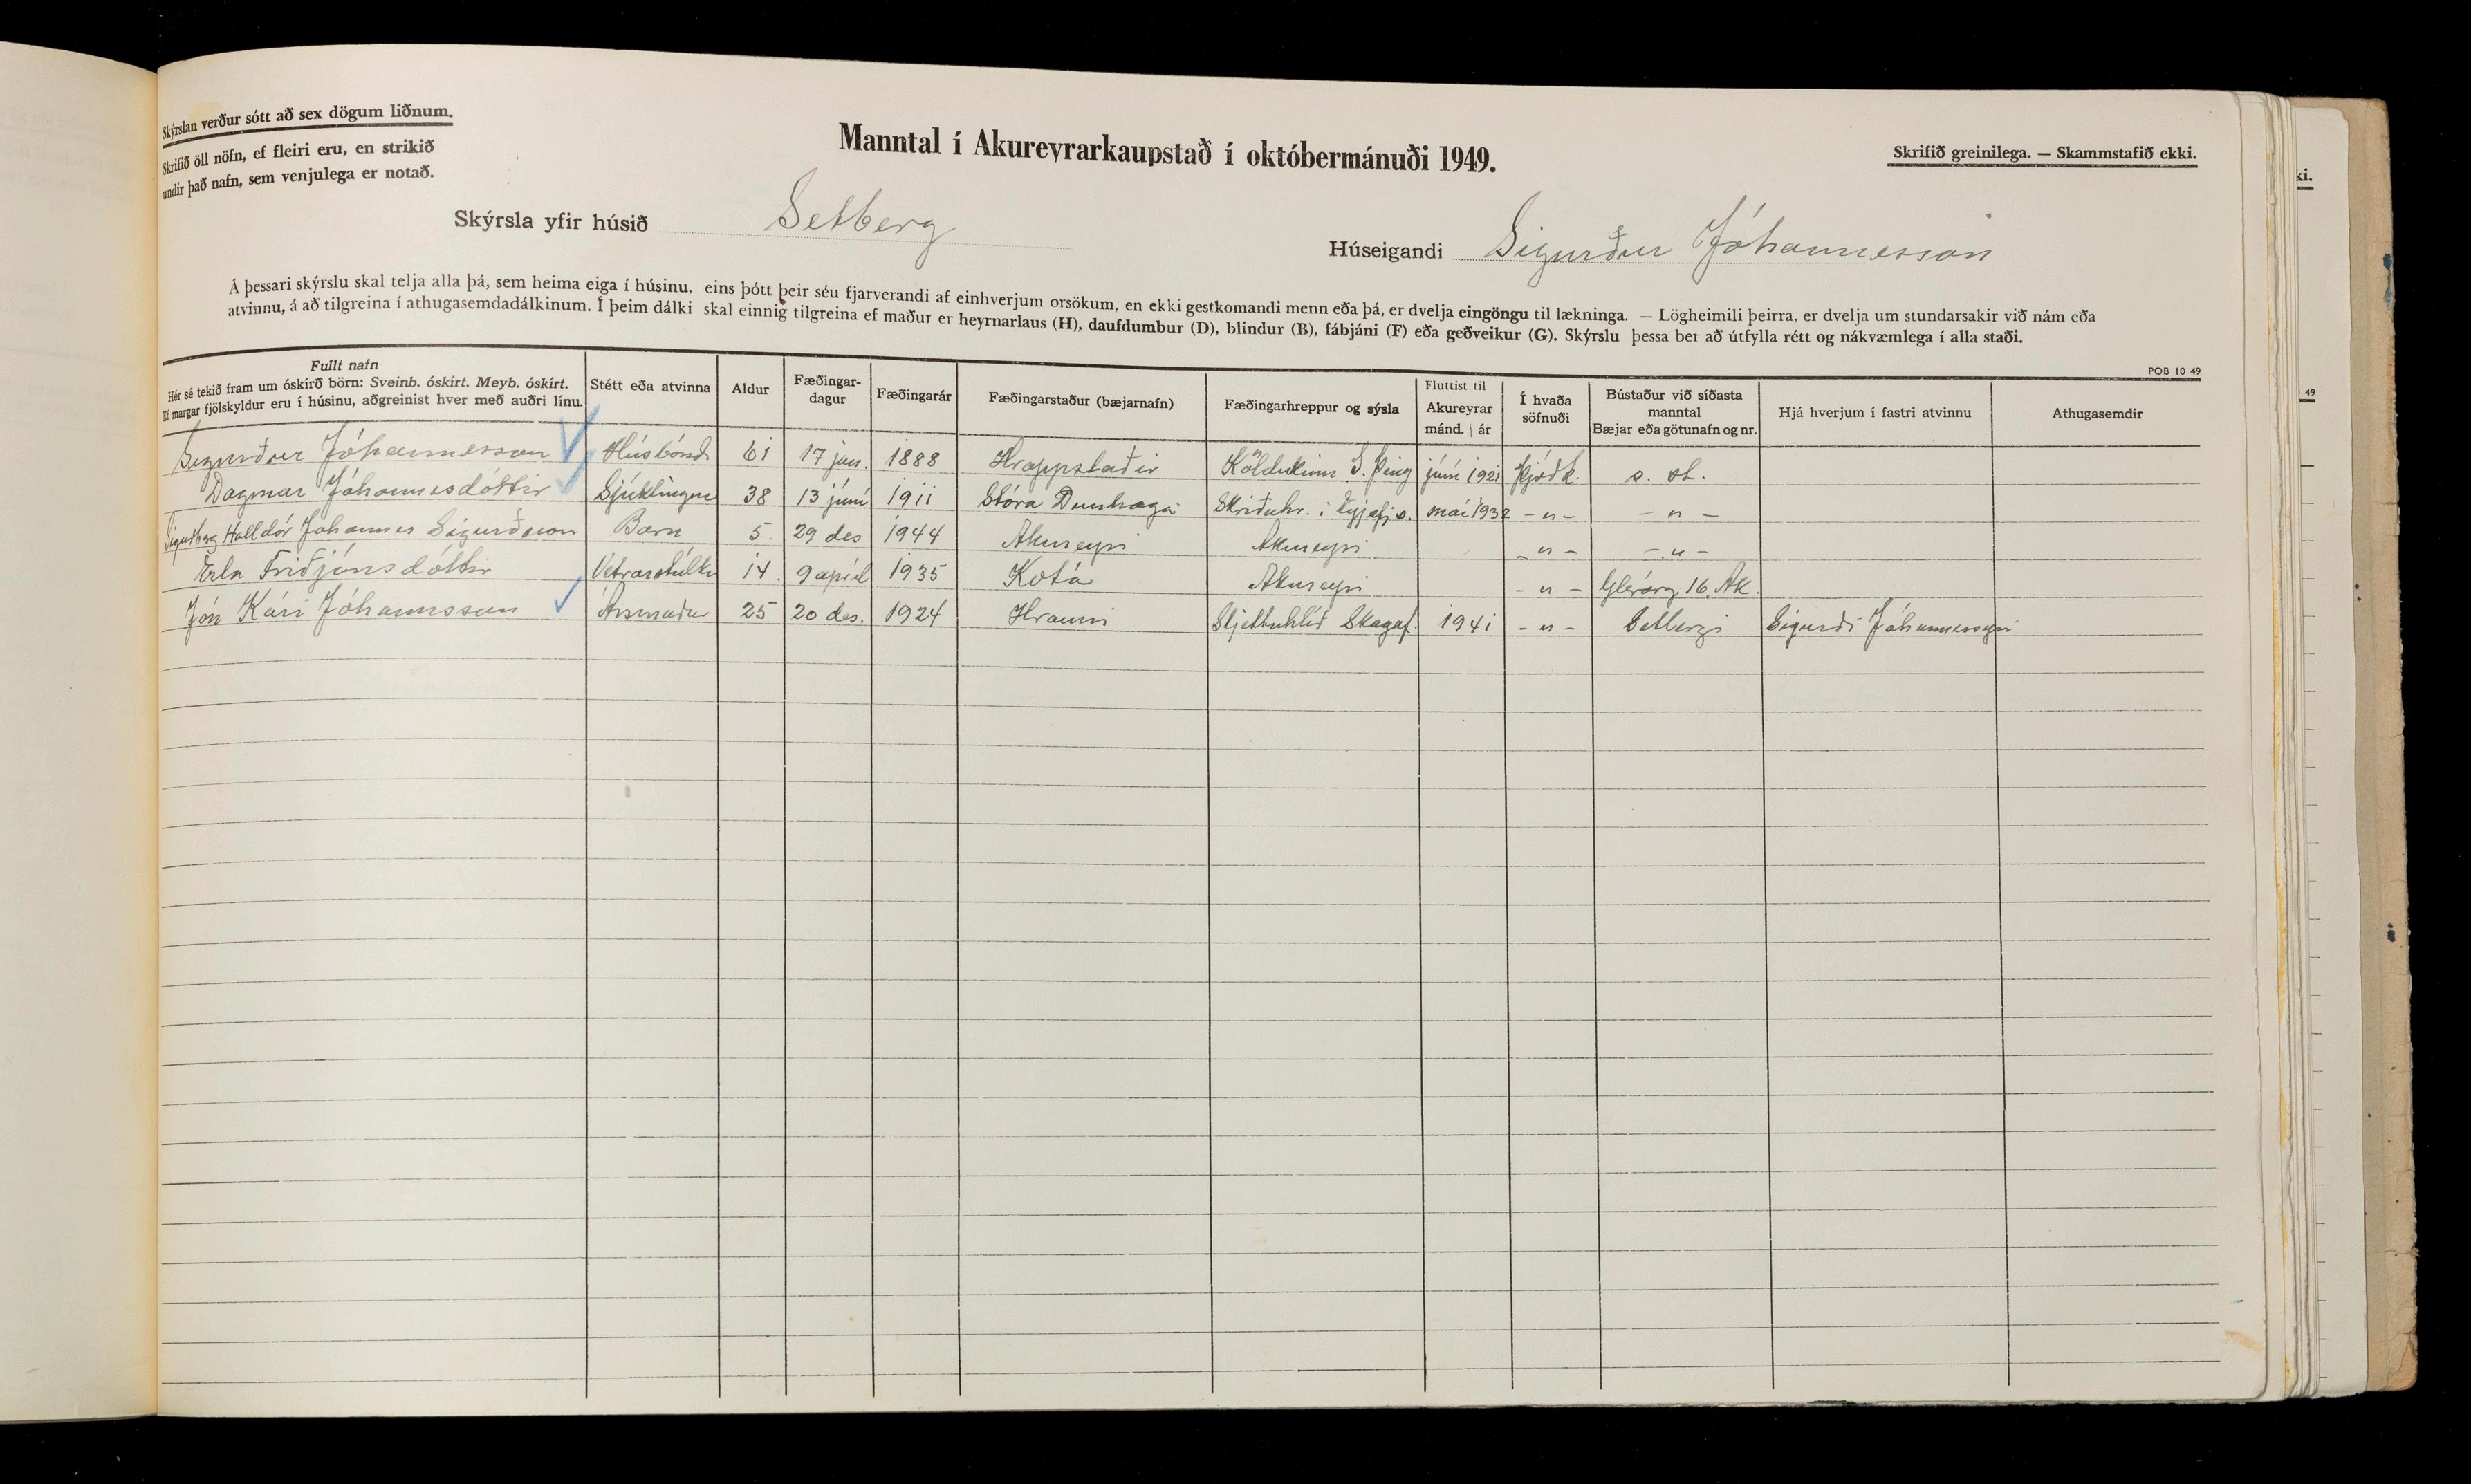 Skýrslan verður sótt að sex dögum liðnum.
Skrifið öll nöfn, ef fleiri eru, en strikið
undir það nafn, sem venjulega er notað.
Manntal í Akureyrarkaupstað í októbermánuði 1949.
Skrifið greinilega. — Skammstafið ekki.
Skýrsla yfir húsið Setberg
Húseigandi Sigurður Jóhannesson
Á þessari skýrslu skal telja alla þá, sem heima eiga í húsinu, eins þótt þeir séu fjarverandi af einhverjum orsökum, en ekki gestkomandi menn eða þá, er dvelja eingöngu til lækninga. — Lögheimili þeirra, er dvelja um stundarsakir við nám eða
atvinnu, á að tilgreina í athugasemdadálkinum. Í þeim dálki skal einnig tilgreina ef maður er heyrnarlaus (H), daufdumbur (D), blindur (B), fábjáni (F) eða geðveikur (G). Skýrslu þessa ber að útfylla rétt og nákvæmlega í alla staði.
POB 10 49
Fullt nafn
Hér sé tekið fram um óskírð börn: Sveinb. óskírt. Meyb. óskírt.
Ef margar fjölskyldur eru í húsinu, aðgreinist hver með auðri línu.
Stétt eða atvinna
Aldur
Fæðingar-
dagur
Fæðingarár
Fæðingarstaður (bæjarnafn)
Fæðingarhreppur og sýsla
Fluttist til
Akureyrar
mánd. | ár
Í hvaða
söfnuði
Bústaður við síðasta
manntal
Bæjar eða götunafn og nr.
Hjá hverjum í fastri atvinnu
Athugasemdir
Sigurður Jóhannesson Húsbóndi 61 17 jan. 1888 Hrappstaðir Köldukinn S. Þing júní 1921 Þjóðk. s. st.
Dagmar Jóhannesdóttir Sjúklingur 38 13 júní 1911 Stóra Dunhaga Skriðuhr. í Eyjafj.s. maí 1932 - " - - " -
Sigurberg Halldór Jóhannes Sigurðsson Barn 5. 29 des 1944 Akureyri Akureyri - " - - " -
Erla Friðjónsdóttir Vetrarstúlka 14. 9 apríl 1935 Kotá Akureyri - " - Glerárg. 16. Ak.
Jón Kári Jóhannsson Ársmaður 25 20 des. 1924 Hrauni Sljettuhlíð Skagaf. 1941 - " - Setbergi Sigurði Jóhannessyni
ki.
49